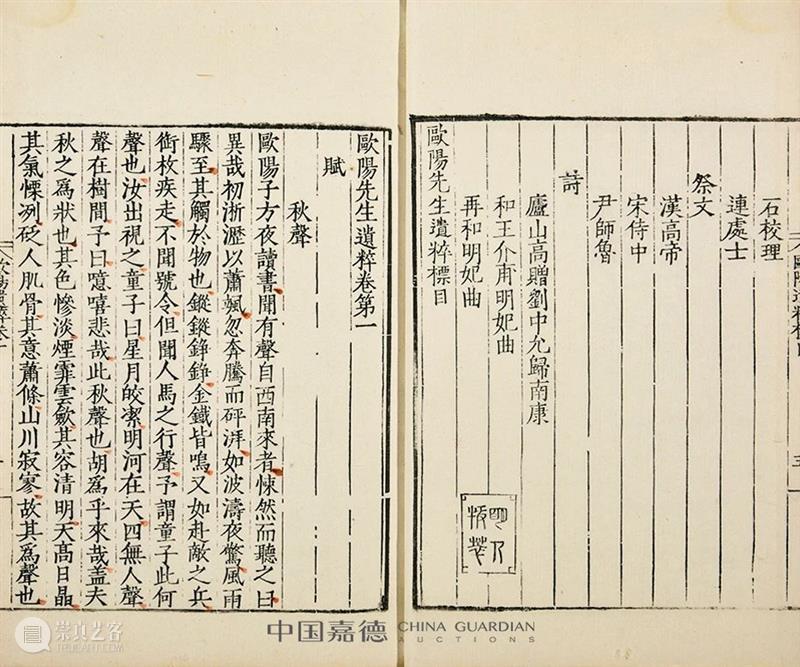 石校理
連處士
祭文
漢高帝
宋侍中
尹師魯
詩
廬山高贈劉中允歸南康
和王介甫明妃曲
再和明妃曲
歐陽先生遺粹標目
歐陽先生遺粹卷第一
賦
秋聲
歐陽子方夜讀書聞有聲自西南來者悚然而聽之曰
異哉初淅瀝以蕭颯忽奔騰而砰湃如波濤夜驚風雨
驟至其觸於物也鏦鏦錚錚金鐵皆鳴又如赴敵之兵
銜枚疾走不聞號令但聞人馬之行聲予謂童子此何
聲也汝出視之童子曰星月皎潔明河在天四無人聲
聲在樹間予曰噫嘻悲哉此秋聲也胡為乎來哉盖夫
秋之為狀也其色慘淡煙霏雲歛其容清明天髙日晶
其氣慄冽砭人肌骨其意蕭條山川寂寥故其為聲也
中国嘉德 CHINA GUARDIAN
AUCTIONS
崇真艺客